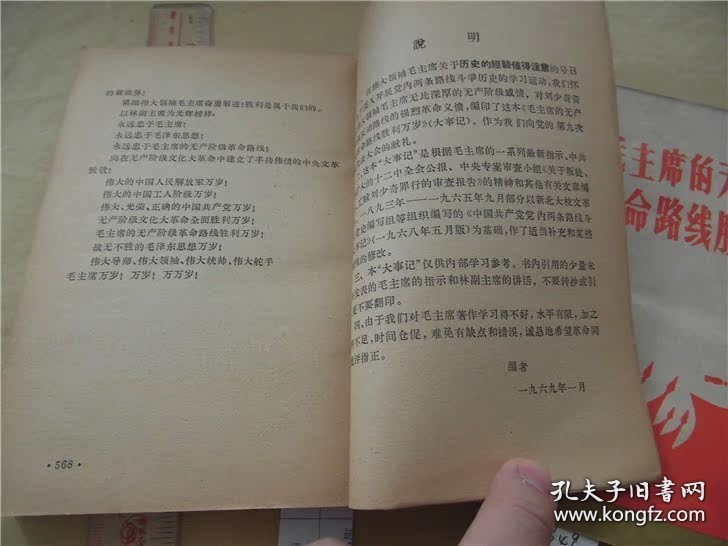 的新世界！
紧跟伟大领袖毛主席奋勇前进！胜利是属于我们的。
以林副主席为光辉榜样！
永远忠于毛主席！
永远忠于毛泽东思想！
永远忠于毛主席的无产阶级革命路线！
向在无产阶级文化大革命中建立了丰功伟绩的中央文革
致敬！
伟大的中国人民解放军万岁！
伟大的中国工人阶级万岁！
伟大、光荣、正确的中国共产党万岁！
无产阶级文化大革命全面胜利万岁！
毛主席的无产阶级革命路线胜利万岁！
战无不胜的毛泽东思想万岁！
伟大导师、伟大领袖、伟大统帅、伟大舵手
毛主席万岁！万岁！万万岁！
·568·
說明
在伟大领袖毛主席关于历史的經驗值得注意的号召
入开放党内两条路线斗争历史的学习运动，我们怀
领袖毛主席无比深厚的无产阶级感情，对刘少奇资
命路线的强烈革命义愤，编印了这本《毛主席的无产
命路线胜利万岁》（大事记）。作为我们向党的第九次
表大会的献礼。
本"大事记"是根据毛主席的一系列最新指示，中共
大的十二中全会公报、中央专案审查小组《关于叛徒、
工贼刘少奇罪行的审查报告》的精神和其他有关文章编
一八九三年——一九六五年九月部分以新北大校文革
党史编写组等组织编写的《中国共产党党内两条路线斗
记》（一九六八年五月版）为基础，作了适当补充和某些
的修改。
三、本"大事记"仅供内部学习参考。书内引用的少量未
发表的毛主席的指示和林副主席的讲话，不要转抄或引
更不要翻印。
四、由于我们对毛主席著作学习得不好，水平有限，加之
不足，时间仓促，难免有缺点和错误，诚恳地希望革命同
批评指正。
编者
一九六九年一月
毛主席的
命路线
孔夫子旧书网
www.kongfz.com